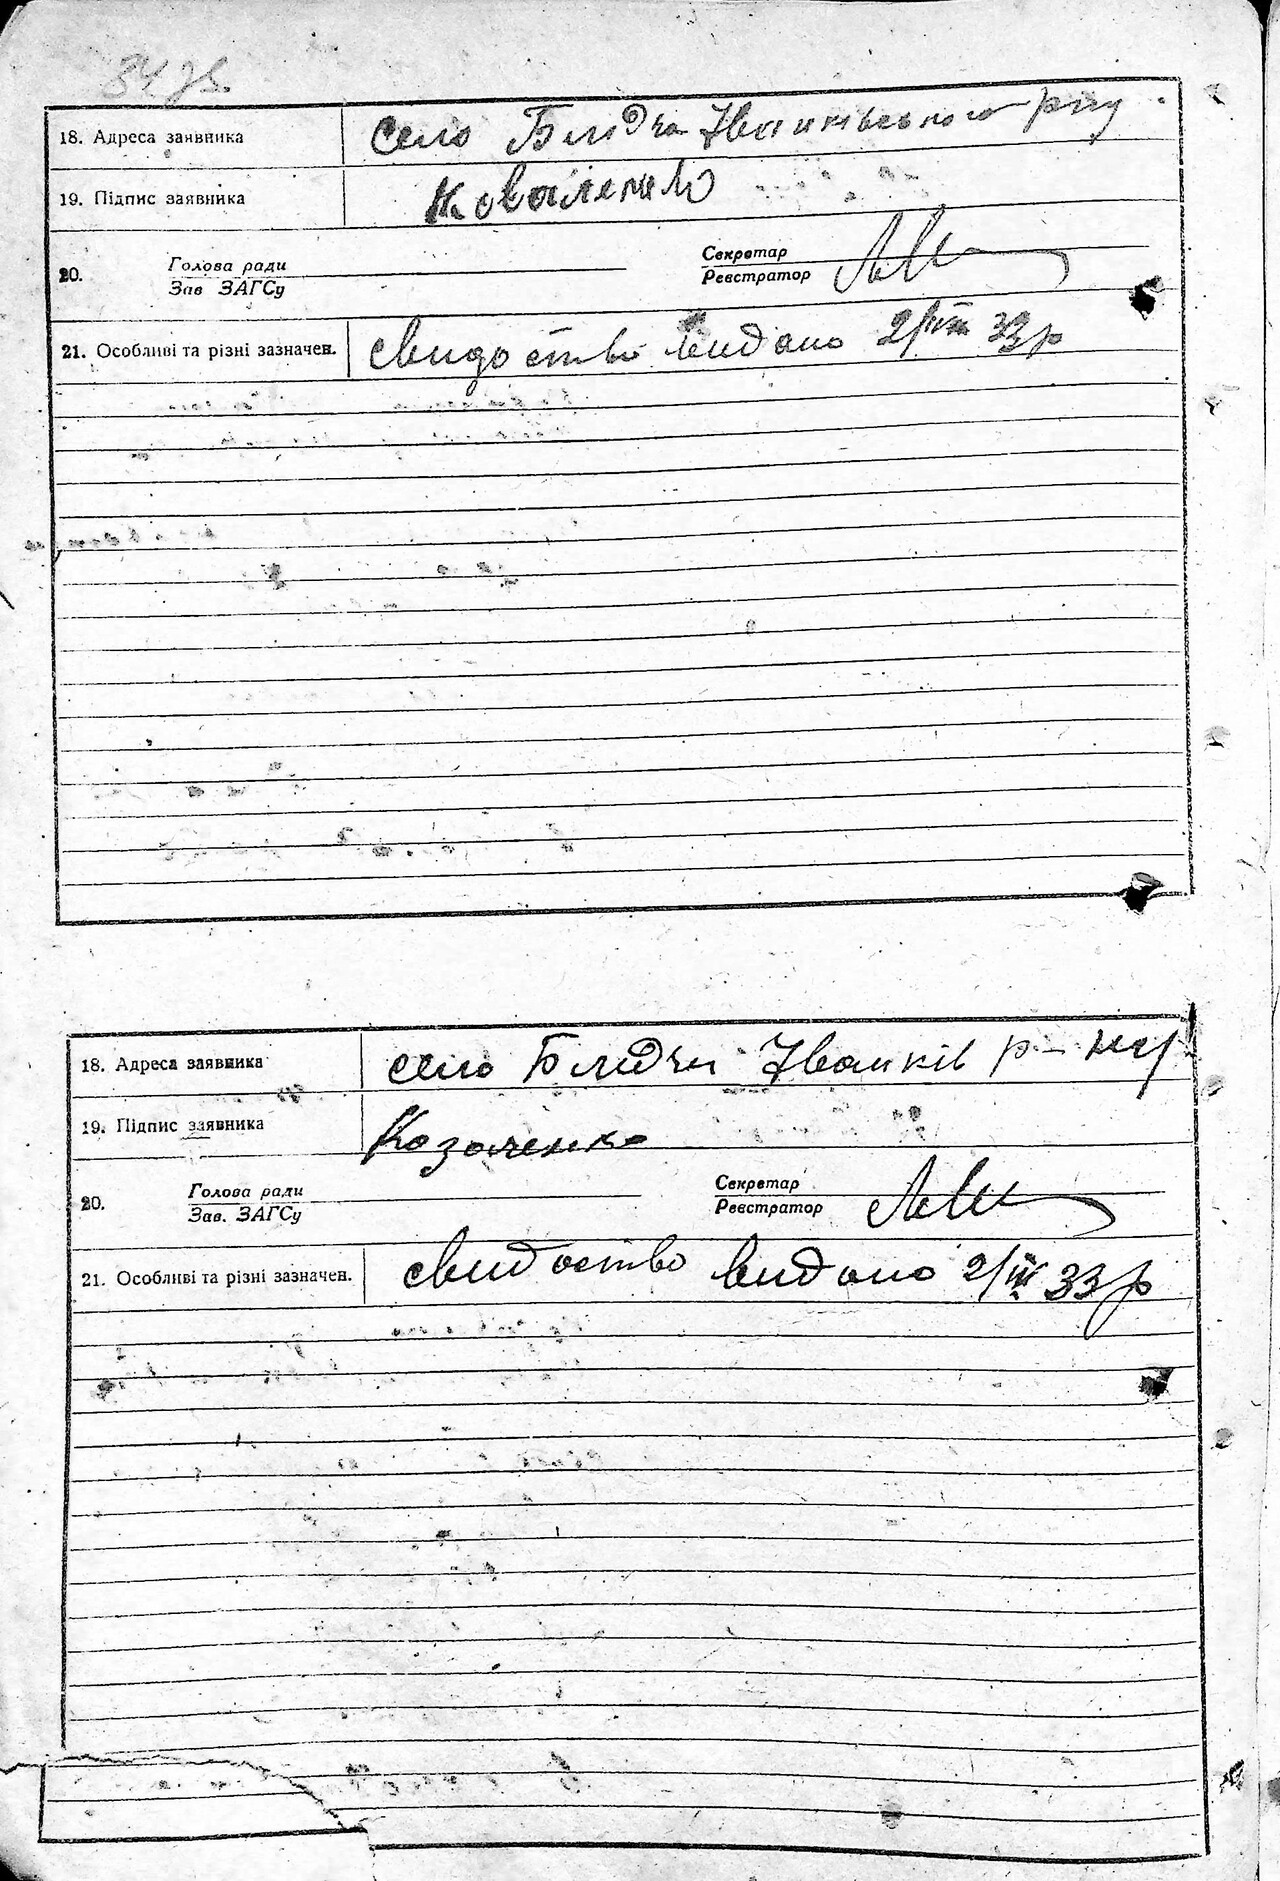 34 зв.
18. Адреса заявника село Блидча Іванківського рну
19. Підпис заявника Коваленко
20. Голова ради Зав ЗАГСу Секретар Реєстратор
21. Особливі та різні зазначен. свидоство видано 2/ 33 р
18. Адреса заявника село Блидчи Іванків р-ну
19. Підпис заявника Козаченко
20. Голова ради Зав. ЗАГСу Секретар Реєстратор
21. Особливі та різні зазначен. свидоство видано 2/ 33 р